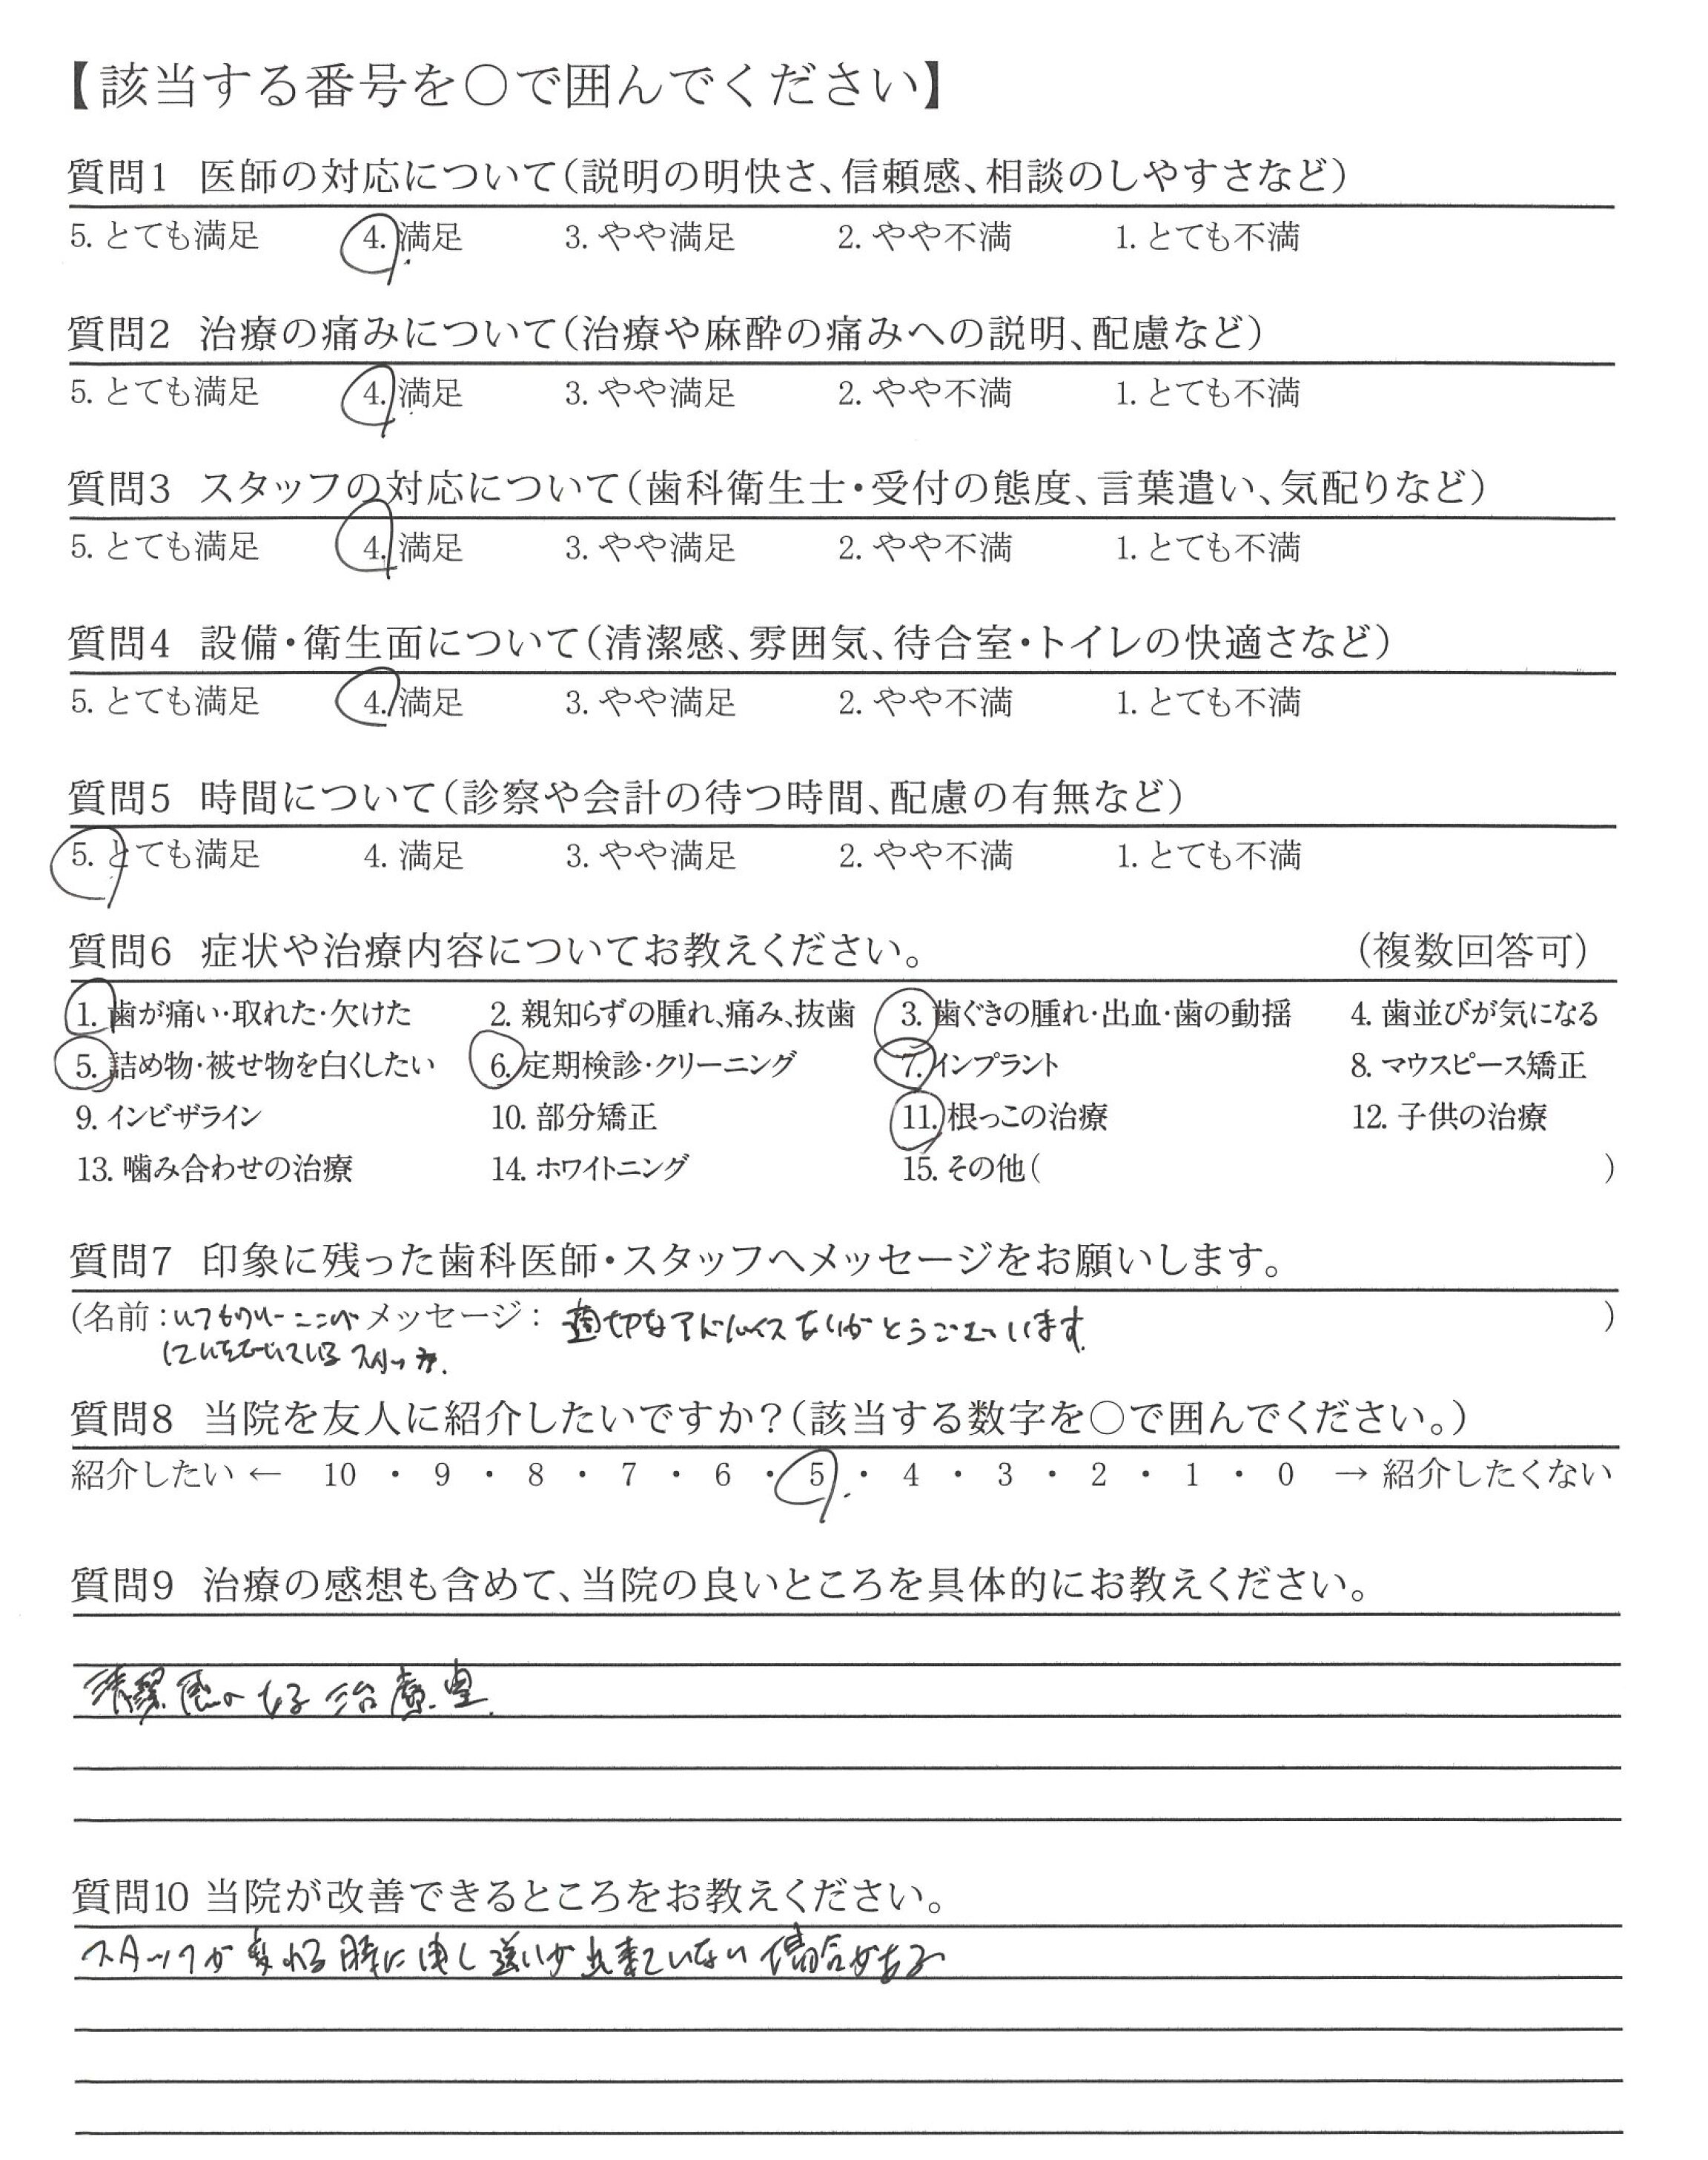 【該当する番号を○で囲んでください】
質問1 医師の対応について(説明の明快さ、信頼感、相談のしやすさなど)
5. とても満足 4. 満足 3. やや満足 2. やや不満 1. とても不満
質問2 治療の痛みについて(治療や麻酔の痛みへの説明、配慮など)
5. とても満足 4. 満足 3. やや満足 2. やや不満 1. とても不満
質問3 スタッフの対応について(歯科衛生士・受付の態度、言葉遣い、気配りなど)
5. とても満足 4. 満足 3. やや満足 2. やや不満 1. とても不満
質問4 設備・衛生面について(清潔感、雰囲気、待合室・トイレの快適さなど)
5. とても満足 4. 満足 3. やや満足 2. やや不満 1. とても不満
質問5 時間について(診察や会計の待つ時間、配慮の有無など)
5. とても満足 4. 満足 3. やや満足 2. やや不満 1. とても不満
質問6 症状や治療内容についてお教えください。 (複数回答可)
1. 歯が痛い・取れた・欠けた 2. 親知らずの腫れ、痛み、抜歯 3. 歯ぐきの腫れ・出血・歯の動揺 4. 歯並びが気になる
5. 詰め物・被せ物を白くしたい 6. 定期検診・クリーニング 7. インプラント 8. マウスピース矯正
9. インビザライン 10. 部分矯正 11. 根っこの治療 12. 子供の治療
13. 噛み合わせの治療 14. ホワイトニング 15. その他( )
質問7 印象に残った歯科医師・スタッフへメッセージをお願いします。
(名前:いつもクリーニング メッセージ: 適切なアドバイスありがとうございます )
していただいている スタッフ
質問8 当院を友人に紹介したいですか?(該当する数字を○で囲んでください。)
紹介したい ← 10 ・ 9 ・ 8 ・ 7 ・ 6 ・ 5 ・ 4 ・ 3 ・ 2 ・ 1 ・ 0 → 紹介したくない
質問9 治療の感想も含めて、当院の良いところを具体的にお教えください。
清潔感のある治療室
質問10 当院が改善できるところをお教えください。
スタッフが変わる時に申し送りが出来ていない場合がある